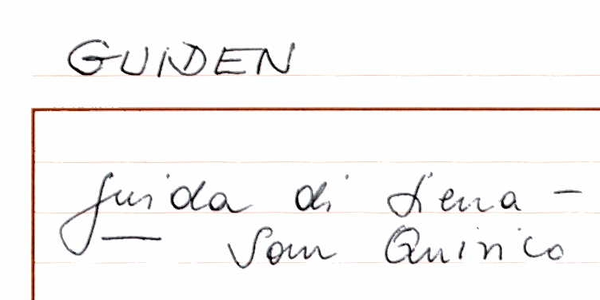 GUIDEN
guida di Siena -
— San Quirico